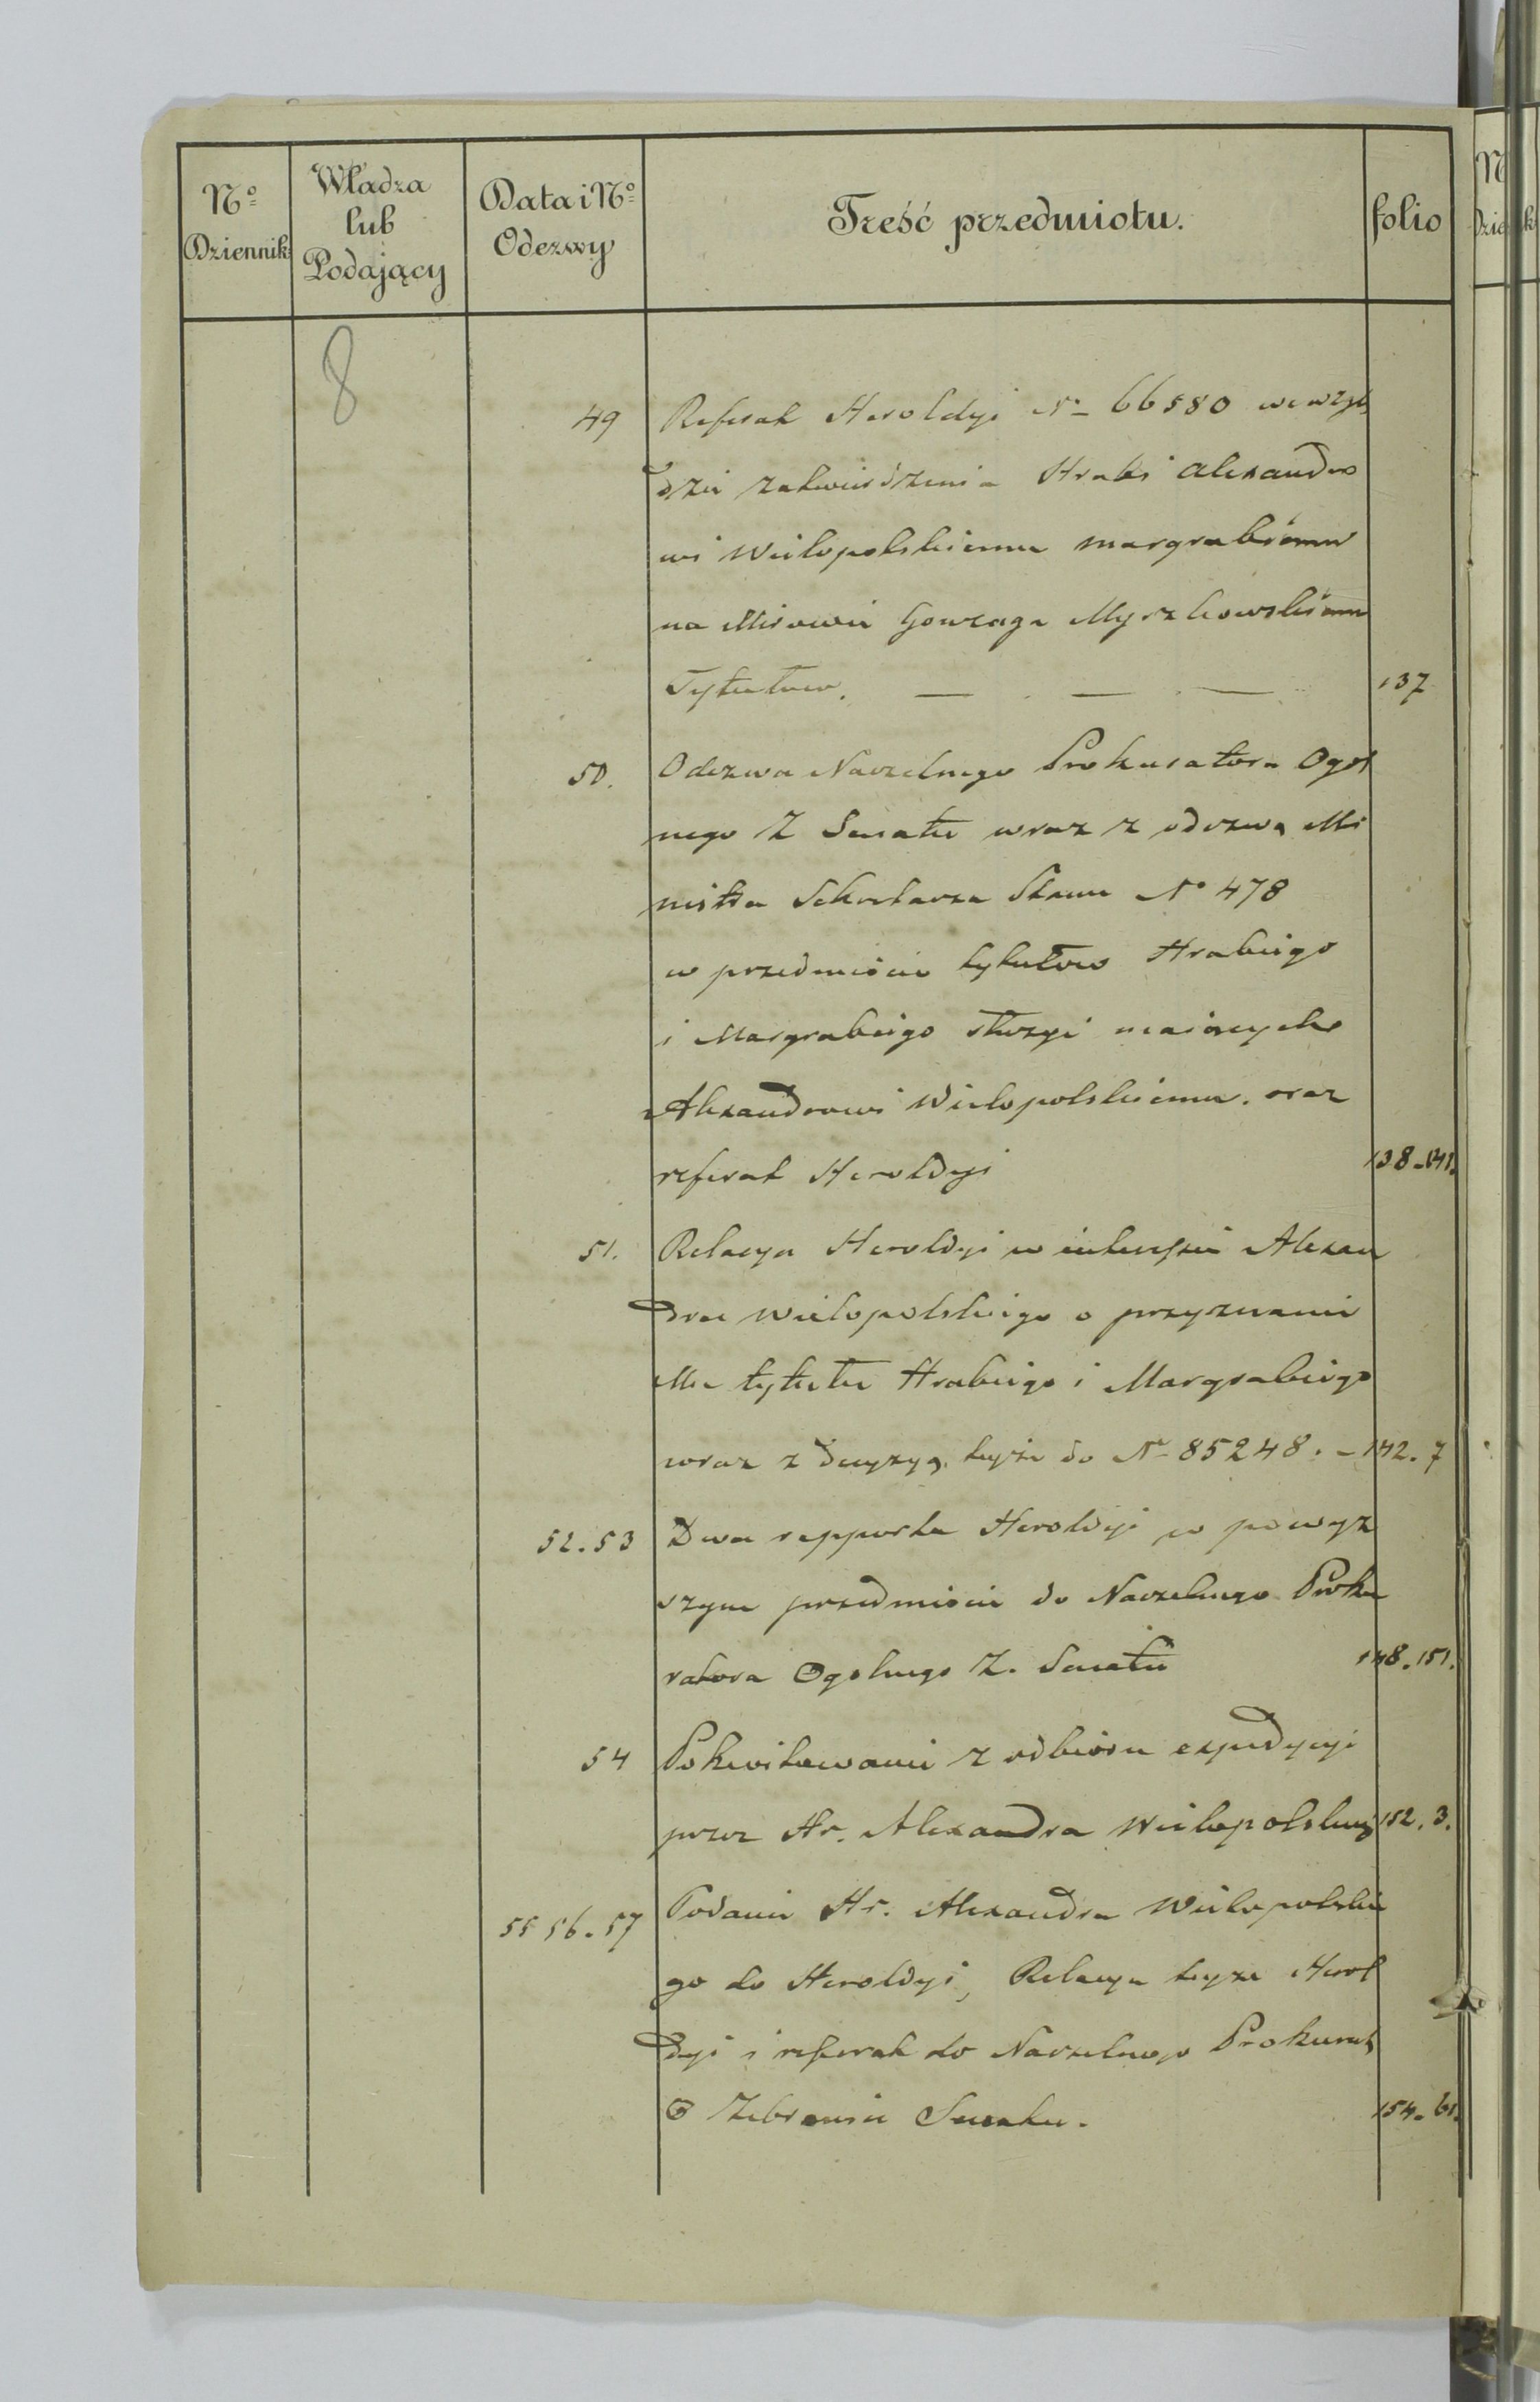 Nº Dziennik:
Władza lub Podający
Data i Nº Odezwy
Treść przedmiotu.
folio
8
49 Referat Heroldyi Nº 66580 wewzglę
dzie zatwierdzenia Hrabi Alexandro
wi Wielopolskiemu margrabiemu
na Mirowie Gonzaga Myszkowskiemu
Tytułow. — — — 137
50. Odezwa Naczelnego Prokuratora Ogol
nego Z Senatu wraz z odezwą Mi
nistra Sekretarza Stanu Nº 478
w przedmiocie tytułow Hrabiego
i Margrabiego służyć maiących
Alexandrowi Wielopolskiemu. oraz
referat Heroldyi 138-141.
51. Relacya Heroldyi w interessie Alexan
dra Wielopolskiego o przyznanie
Mu tytułu Hrabiego i Margrabiego
wraz z decyzyą teyże do Nº 85248. - 142.7
52.53 Dwa rapporta Heroldyi w powyż
szym przedmiocie do Naczelnego Proku
ratora Ogolnego Z. Senatu 148.151.
54 Pokwitowanie z odbioru expedycyi
przez Hr. Alexandra Wielopolskieg 152.3.
55 56.57 Podanie Hr. Alexandra Wielopolskie
go do Heroldyi, Relacya teyże Herol
dyi i referat do Naczelnego Prokurat
O Zebrania Senatu. 154-61.